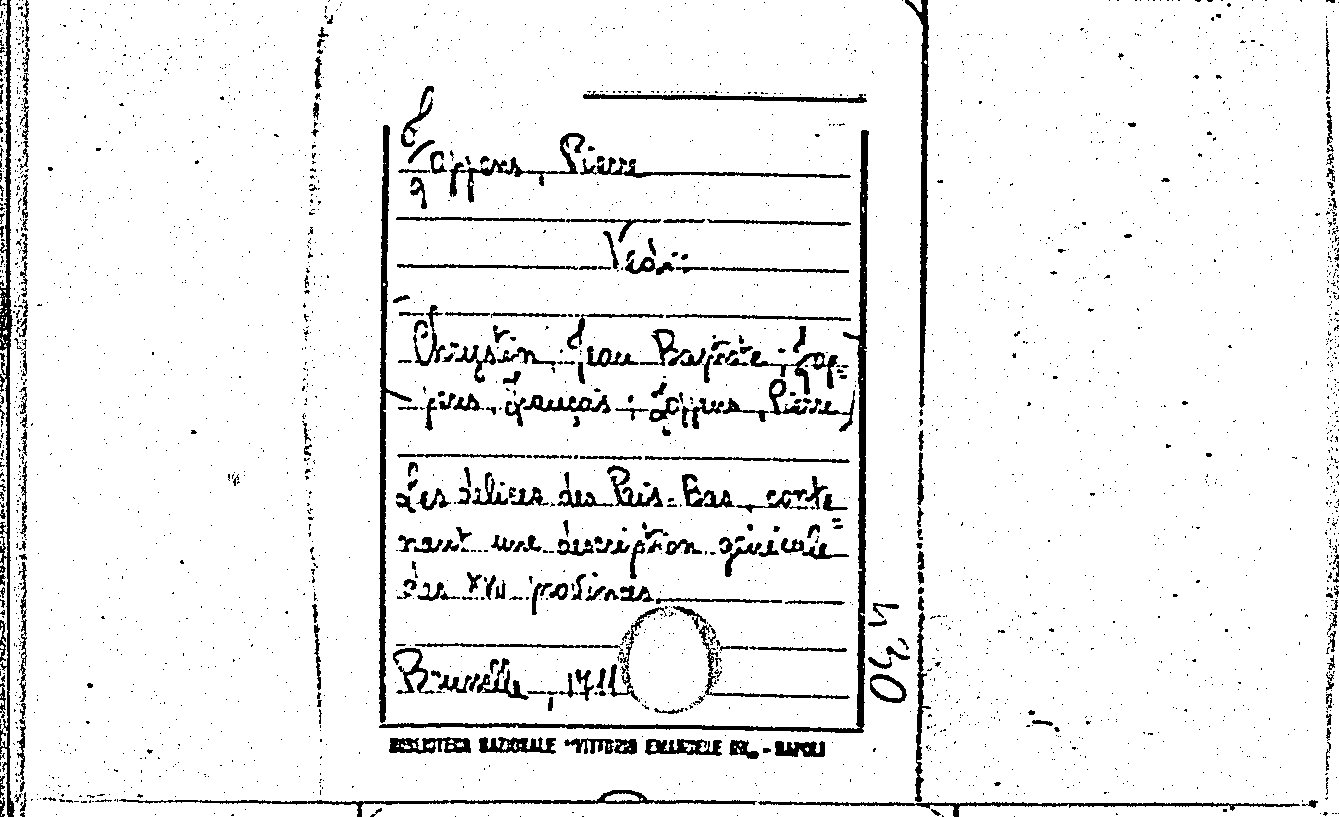 Foppens, Pierre
Vedi:
Chrystin, Jean Baptiste; Fop=
pens, François; Foppens, Pierre
Les délices des Pais-Bas, conte=
nant une description générale
des XVII provinces
Bruxelle, 1711
BIBLIOTECA NAZIONALE "VITTORIO EMANUELE III" - NAPOLI